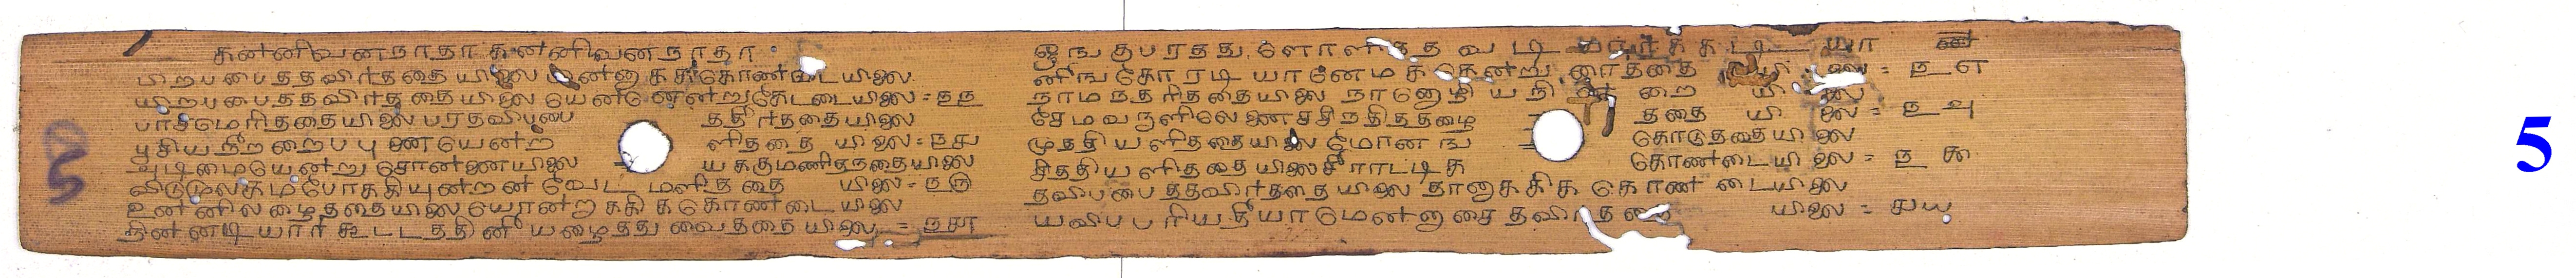 கன்னிவனநாதா கன்னிவனநாதா
பிறபபைததவிர்ததையிலை பின்னுககுகொண்டையிலை
யிறபபைததவிர்ததையிலை யென்னென்றுகேடடையிலை = ௩௩
பாசமெரிததையிலை பரதவிபபை ததிர்ததையிலை
பூசியநீறறைபபுணையென்ற ளிததை யிலை = ௩௪
அடிமையென்று சொன்னையிலை யககுமணிதநதையிலை
விடுமுலகமபோககியுன்றன் வேடமளிததை யிலை = ௩௫
உன்னிலழைததையிலை யொன்றாககிககொண்டையிலை
நின்னடியார் கூடடததினீ யழைதது வைததையிலை = ௩௬
ஓஙகுபரதது ளொளிதத வடி யார்ககடி யா
னீஙகோரடியானெமககென்றுரைததை யிலை = ௩௭
நாமநதரிததையிலை நானொழியநின்றை யிலை
சேமவருளிலெணைசசிநதிததழை ததை யிலை = ௩௮
முததியளிததையிலை மோனங கொடுததையிலை
சிததியளிததையிலை சீராடடிக கொண்டையிலை = ௩௯
தவிபபைததவிர்ததையிலை தானாககிக கொண்டையிலை
யவிபபரியதீயாமென்னாசை தவிர்ததை யிலை = ௪௰
5
5